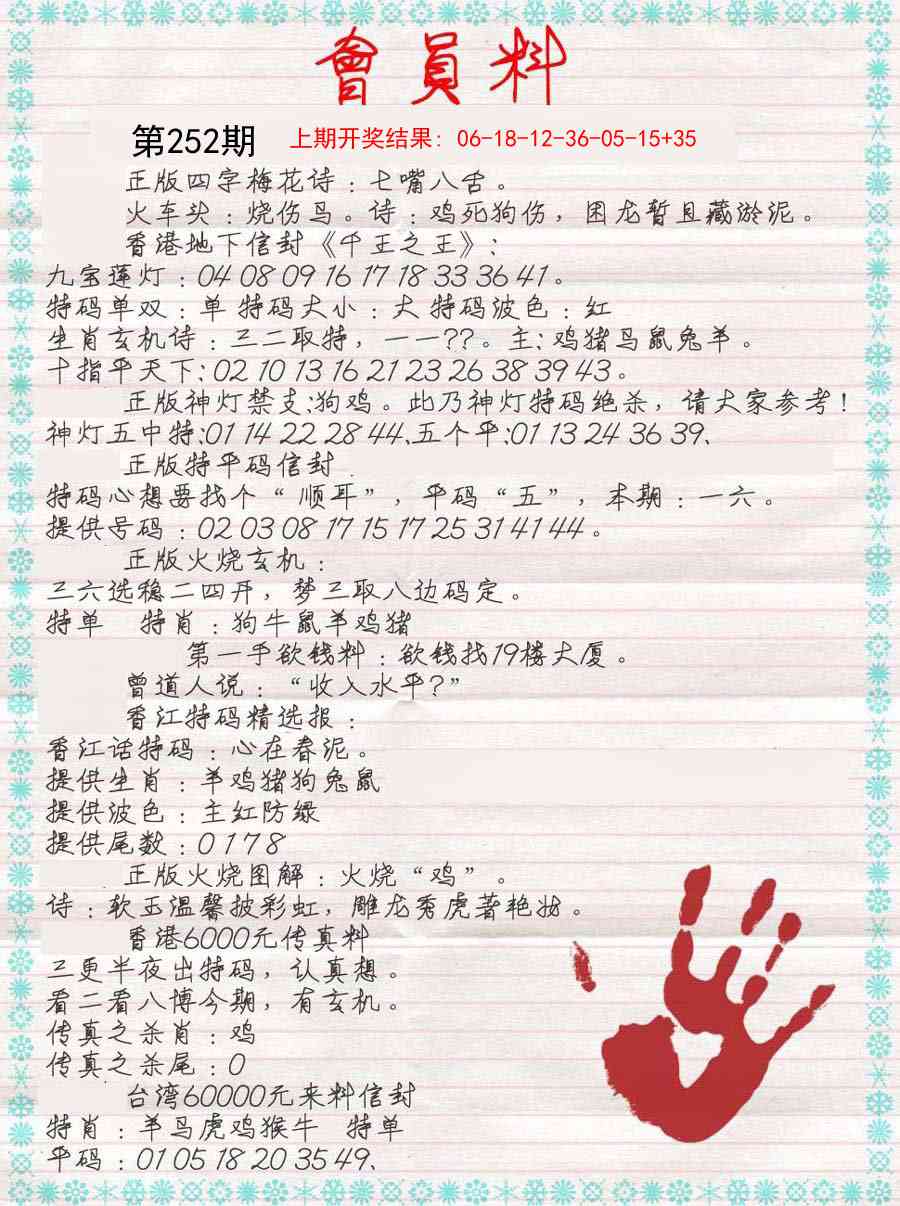 會員料
第252期 上期开奖结果：06-18-12-36-05-15+35
正版四字梅花诗：七嘴八舌。
火车头：烧伤鸟。诗：鸡死狗伤，困龙暂且藏淤泥。
香港地下信封《千王之王》：
九宝莲灯：04 08 09 16 17 18 33 36 41。
特码单双：单 特码大小：大 特码波色：红
生肖玄机诗：三二取特，一一??。主：鸡猪鸟鼠兔羊。
十指平天下：02 10 13 16 21 23 26 38 39 43。
正版神灯禁支：狗鸡。此乃神灯特码绝杀，请大家参考！
神灯五中特：01 14 22 28 44、五个平：01 13 24 36 39、
正版特平码信封
特码心想要找个“顺耳”，平码“五”，本期：一六。
提供号码：02 03 08 17 15 17 25 31 41 44。
正版火烧玄机：
三六选稳二四开，梦三取八边码定。
特单 特肖：狗牛鼠羊鸡猪
第一手欲钱料：欲钱找19楼大厦。
曾道人说：“收入水平?”
香江特码精选报：
香江话特码：心在春泥。
提供生肖：羊鸡猪狗兔鼠
提供波色：主红防绿
提供尾数：0 1 7 8
正版火烧图解：火烧“鸡”。
诗：软玉温馨披彩虹，雕龙秀虎著艳妆。
香港6000元传真料
三更半夜出特码，认真想。
看二看八博今期，有玄机。
传真之杀肖：鸡
传真之杀尾：0
台湾60000元来料信封
特肖：羊鸟虎鸡猴牛 特单
平码：01 05 18 20 35 49、